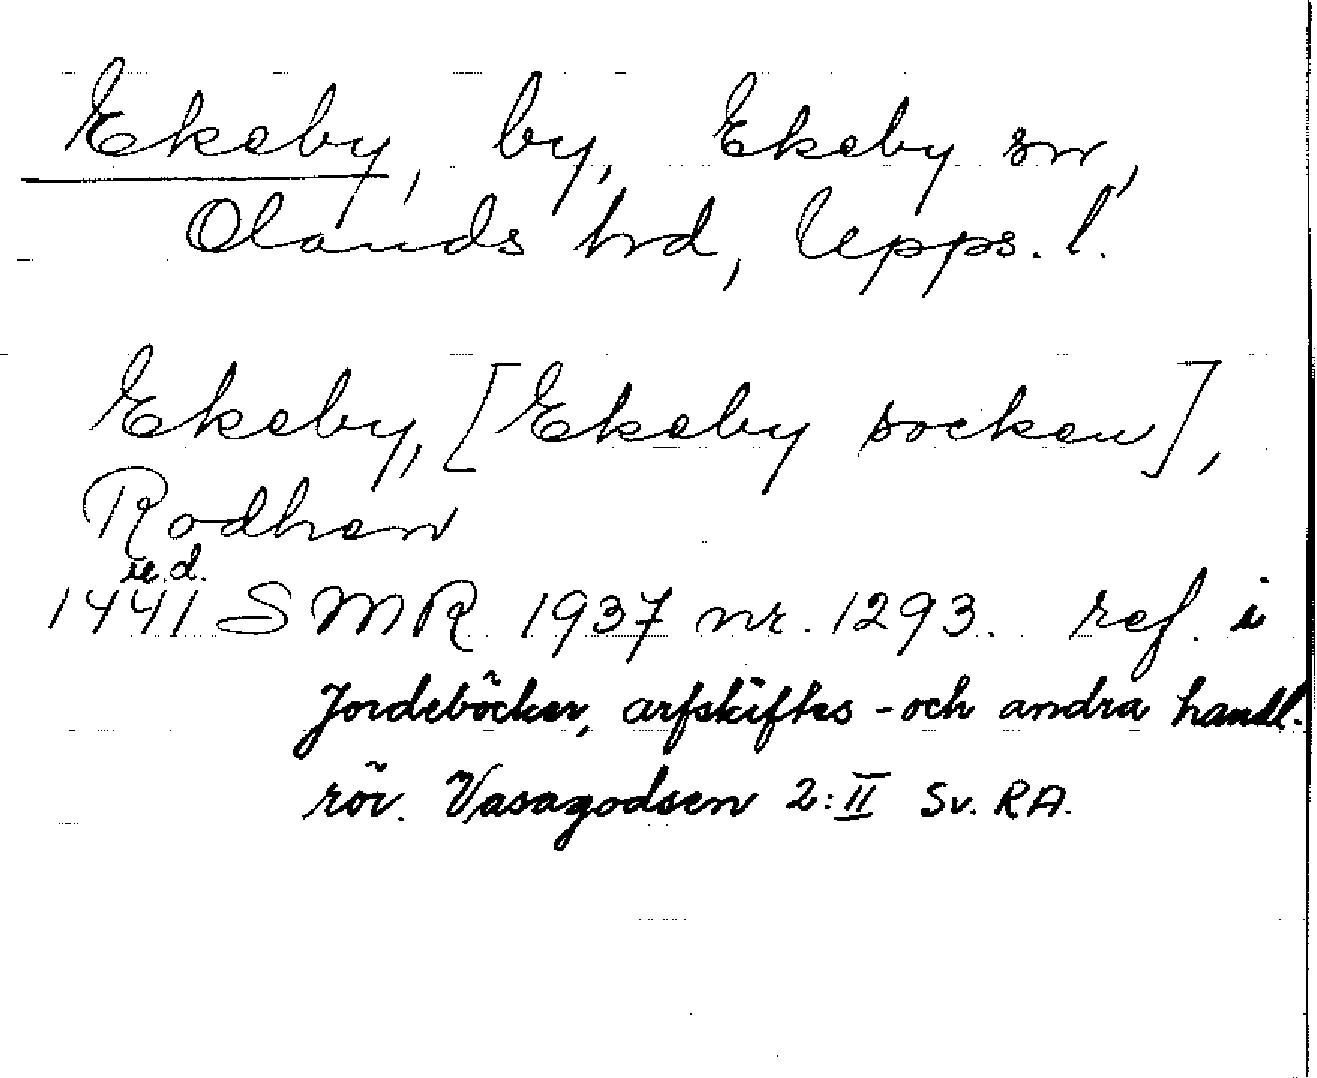 Ekeby, by, Ekeby sn,
Olands hd, Upps. l.
Ekeby, [Ekeby socken],
Rodhen
u.d.
1441 SMR 1937 nr. 1293. ref. i
Jordeböcker, arfskiftes- och andra handl.
rör. Vasagodsen 2:II Sv. RA.